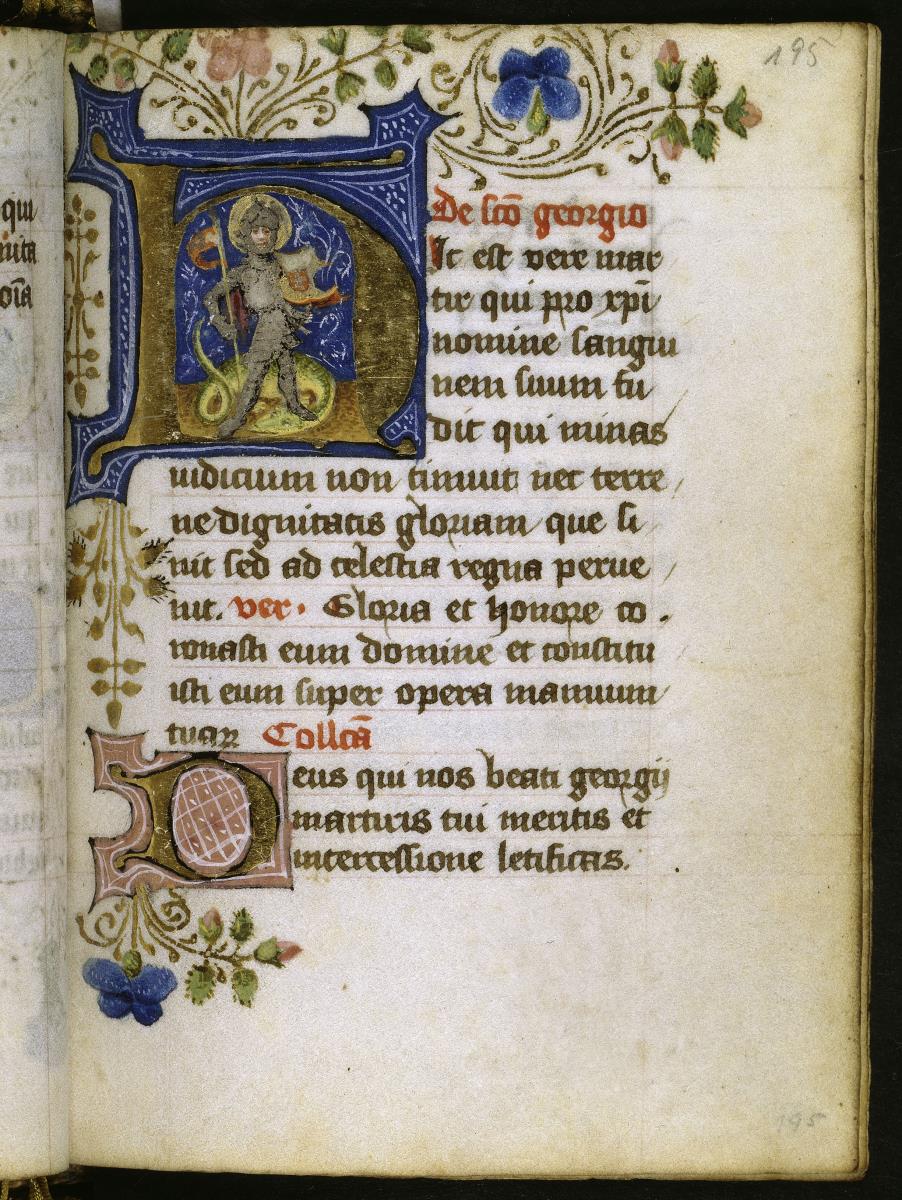 195
qui
De sco georgio
Hic est vere mar
tir qui pro xpi
nomine sangui
nem suum fu
dit qui minas
iudicium non timuit nec terre
ne dignitatis gloriam que si
uit sed ad celestia regna perue
nit. ver. Gloria et honore co
ronasti eum domine et constitu
isti eum super opera manuum
tuaꝝ Collcā
Deus qui nos beati georgij
martiris tui meritis et
intercessione letificas.
195